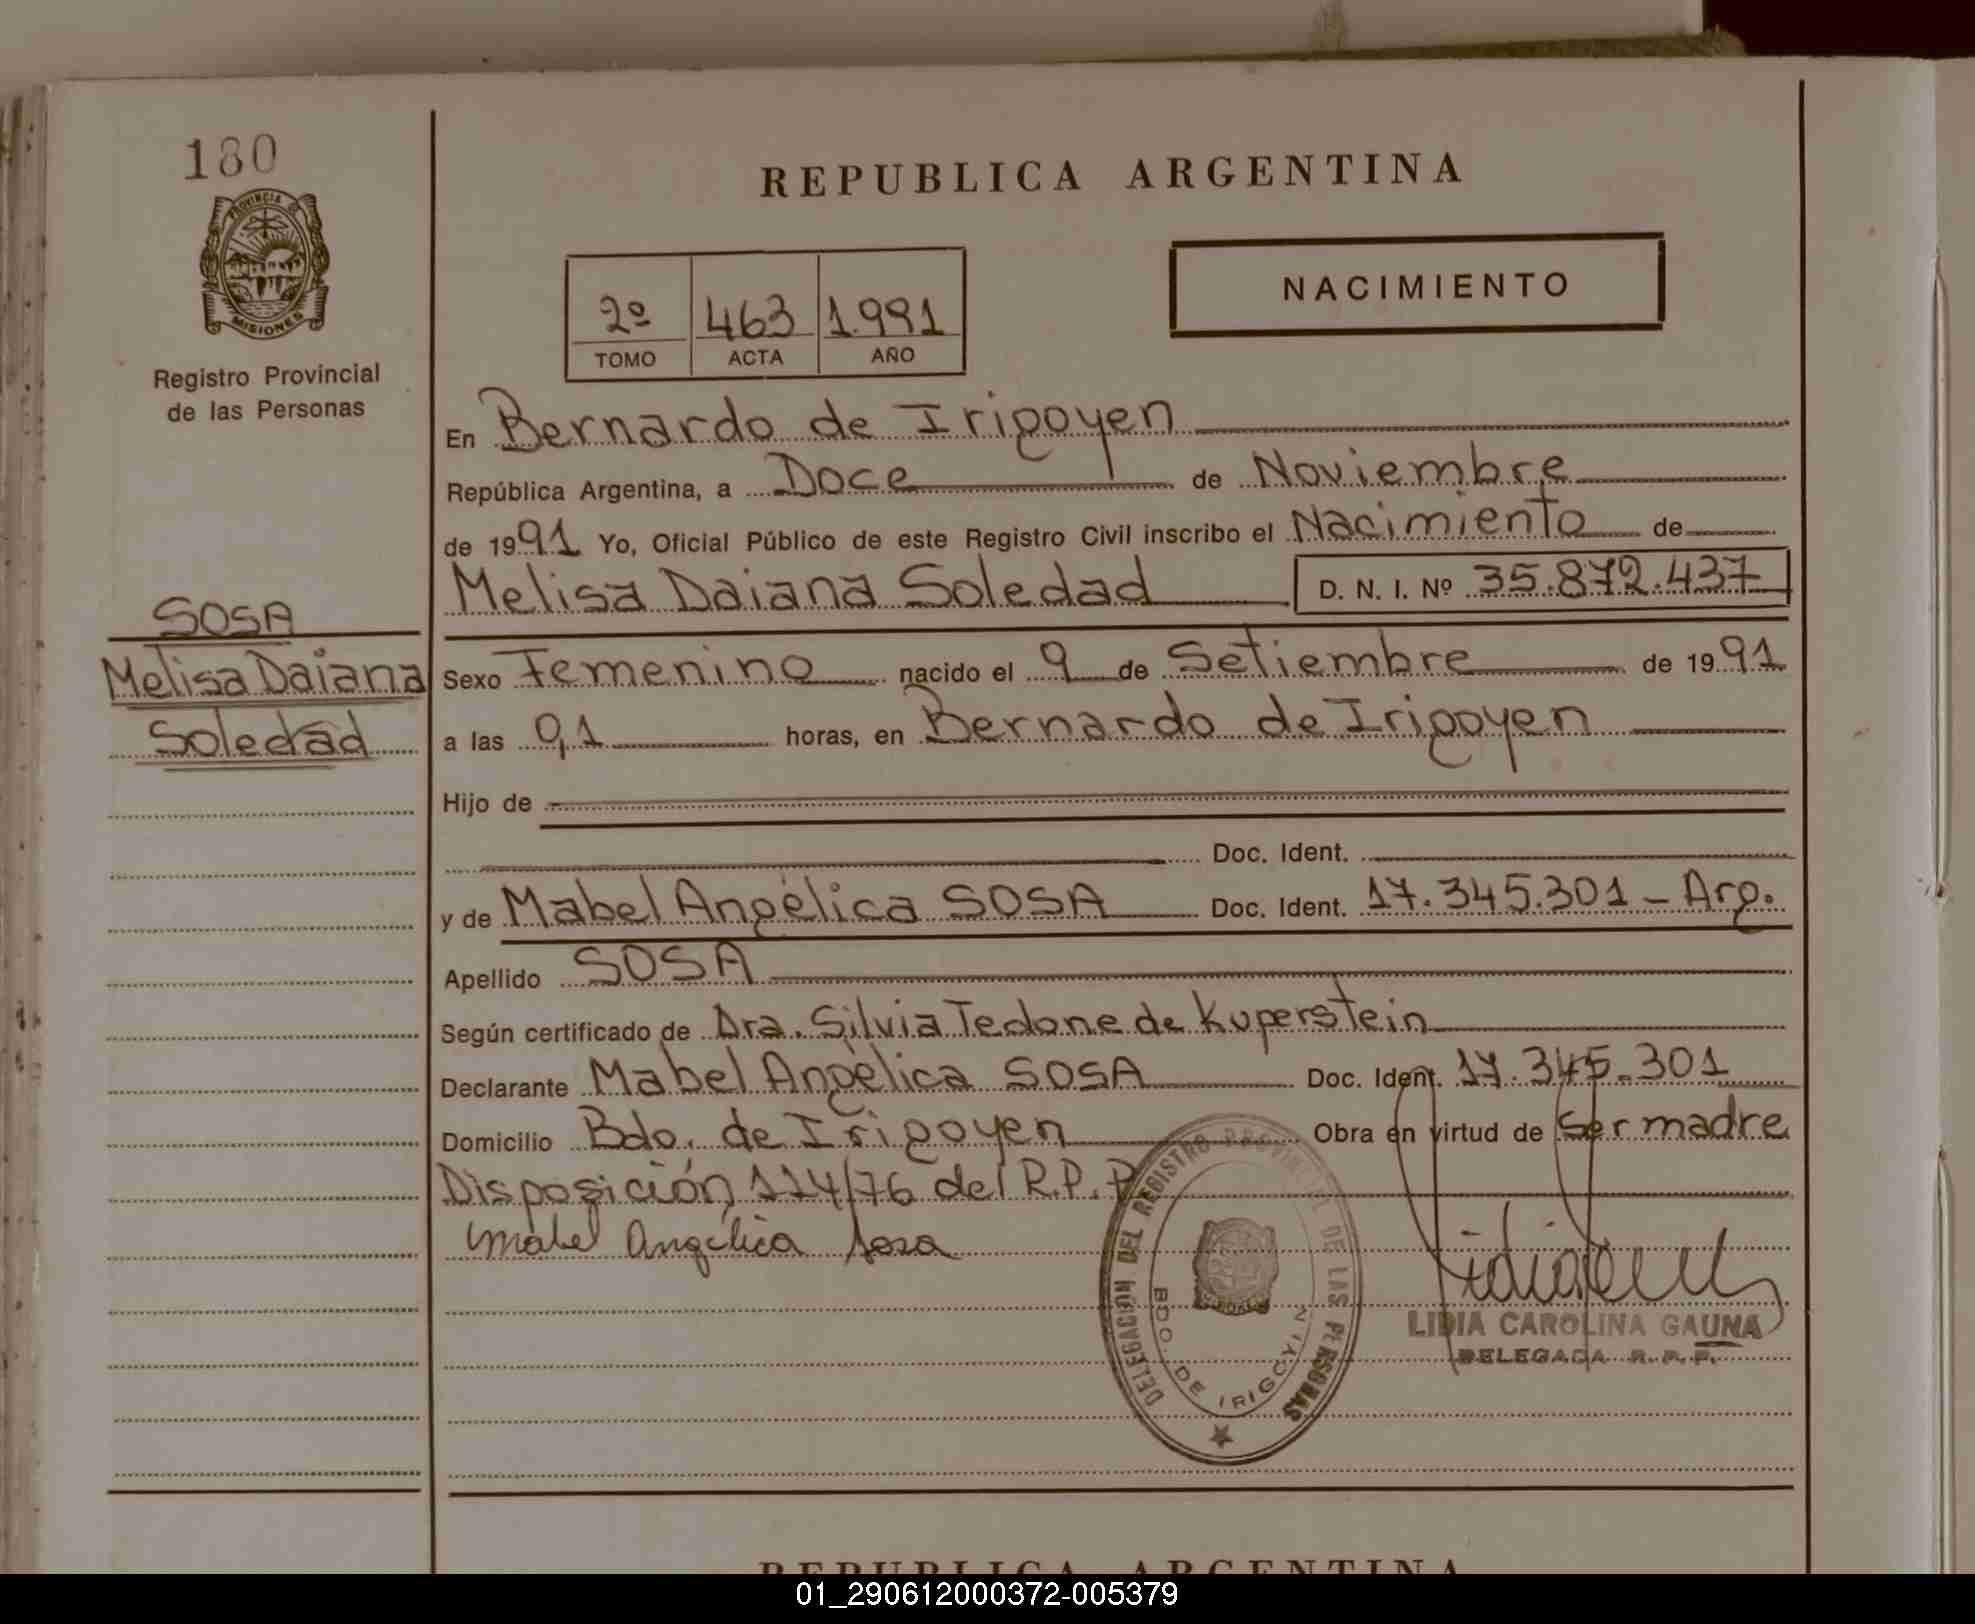 180
PROVINCIA DE
MISIONES
Registro Provincial
de las Personas
SOSA
Melisa Daiana
Soledad
REPUBLICA ARGENTINA
2º 463 1.991
TOMO ACTA AÑO
NACIMIENTO
En Bernardo de Irigoyen
República Argentina, a Doce de Noviembre
de 1991 Yo, Oficial Público de este Registro Civil inscribo el Nacimiento de
Melisa Daiana Soledad D. N. I. Nº 35.872.437
Sexo Femenino nacido el 9 de Setiembre de 1991
a las 9,1 horas, en Bernardo de Irigoyen
Hijo de
Doc. Ident.
y de Mabel Angélica SOSA Doc. Ident. 17.345.301 - Arg.
Apellido SOSA
Según certificado de Dra. Silvia Tedone de Kuperstein
Declarante Mabel Angélica SOSA Doc. Ident. 17.345.301
Domicilio Bdo. de Irigoyen Obra en virtud de Ser madre
Disposición 114/76 del R.P.P
Mabel Angélica Sosa
DELEGACION DEL REGISTRO PROVINCIAL DE LAS PERSONAS
BDO. DE IRIGOYEN
LIDIA CAROLINA GAUNA
DELEGADA R.P.P.
REPUBLICA ARGENTINA
01_290612000372-005379